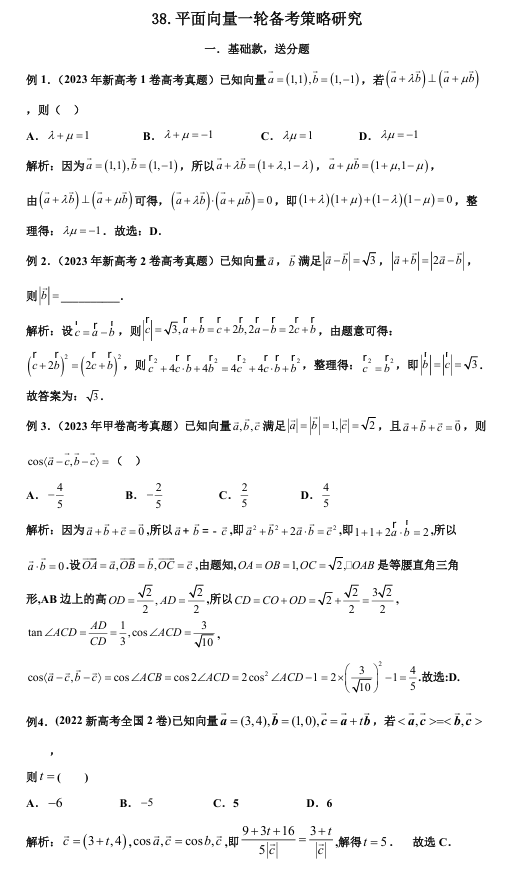 38.平面向量一轮备考策略研究
一．基础款，送分题
例 1.（2023 年新高考 1 卷高考真题）已知向量 a⃗ = (1,1), b⃗ = (1,−1)，若 (a⃗ + λb⃗) ⊥ (a⃗ + μb⃗)
，则（　）
A． λ + μ = 1　　B． λ + μ = −1　　C． λμ = 1　　D． λμ = −1
解析：因为 a⃗ = (1,1), b⃗ = (1,−1)，所以 a⃗ + λb⃗ = (1+λ,1−λ)， a⃗ + μb⃗ = (1+μ,1−μ)，
由 (a⃗ + λb⃗) ⊥ (a⃗ + μb⃗) 可得， (a⃗ + λb⃗)·(a⃗ + μb⃗) = 0，即 (1+λ)(1+μ)+(1−λ)(1−μ) = 0，整
理得： λμ = −1．故选：D．
例 2.（2023 年新高考 2 卷高考真题）已知向量 a⃗， b⃗ 满足 |a⃗ − b⃗| = √3， |a⃗ + b⃗| = |2a⃗ − b⃗|，
则 |b⃗| = __________．
解析：设 c = a − b，则 |c| = √3, a + b = c + 2b, 2a − b = 2c + b，由题意可得：
(c + 2b)² = (2c + b)²，则 c² + 4c·b + 4b² = 4c² + 4c·b + b²，整理得： c² = b²，即 |b| = |c| = √3．
故答案为： √3．
例 3.（2023 年甲卷高考真题）已知向量 a⃗,b⃗,c⃗ 满足 |a⃗| = |b⃗| = 1, |c⃗| = √2，且 a⃗ + b⃗ + c⃗ = 0⃗，则
cos⟨a⃗ − c⃗, b⃗ − c⃗⟩ =（　）
A． −4/5　　B． −2/5　　C． 2/5　　D． 4/5
解析：因为 a⃗ + b⃗ + c⃗ = 0⃗,所以 a⃗ + b⃗ = - c⃗,即 a⃗² + b⃗² + 2a⃗·b⃗ = c⃗²,即 1+1+2a·b = 2,所以
a⃗·b⃗ = 0.设 OA⃗ = a⃗, OB⃗ = b⃗, OC⃗ = c⃗,由题知, OA = OB = 1, OC = √2,□OAB 是等腰直角三角
形,AB 边上的高 OD = √2/2, AD = √2/2,所以 CD = CO + OD = √2 + √2/2 = 3√2/2，
tan∠ACD = AD/CD = 1/3, cos∠ACD = 3/√10，
cos⟨a⃗ − c⃗, b⃗ − c⃗⟩ = cos∠ACB = cos2∠ACD = 2cos²∠ACD − 1 = 2×(3/√10)² − 1 = 4/5.故选:D.
例4.（2022 新高考全国 2 卷)已知向量 a⃗ = (3,4), b⃗ = (1,0), c⃗ = a⃗ + tb⃗，若 < a⃗,c⃗ >=< b⃗,c⃗ >
，
则 t = (　　)
A． −6　　B． −5　　C．5　　D．6
解析： c⃗ = (3 + t,4), cos a⃗,c⃗ = cos b,c⃗,即 (9+3t+16)/(5|c⃗|) = (3+t)/|c⃗|,解得 t = 5．　故选 C．